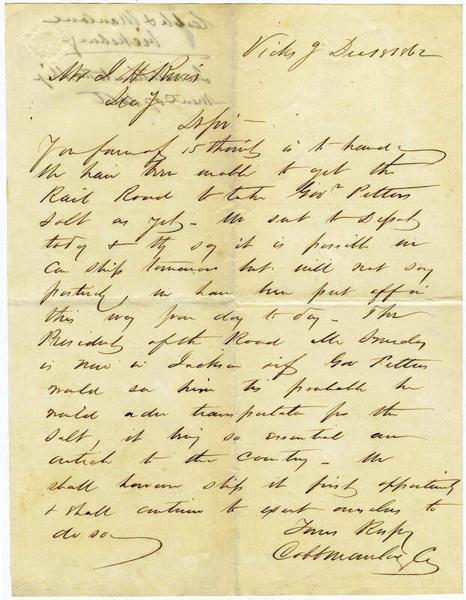 Vicksg Dec 18 1862
Mr J H Rives
Secy
D Sir —
Your favor of 15th inst is to hand
We have been unable to get the
Rail Road to take Govr Pettus
Salt as yet — We sent to Depot
today & they say it is possible we
can ship tomorrow but will not say
positively, we have been put off in
this way from day to day — The
President of the Road Mr Smedes
is now in Jackson & if Gov Pettus
would see him tis probable he
would order transportation for the
Salt, it being so essential an
article to the Country — We
shall however ship it first opportunity
& shall continue to exert ourselves to
do so
Yours Respy
Cobb Manlove & Co